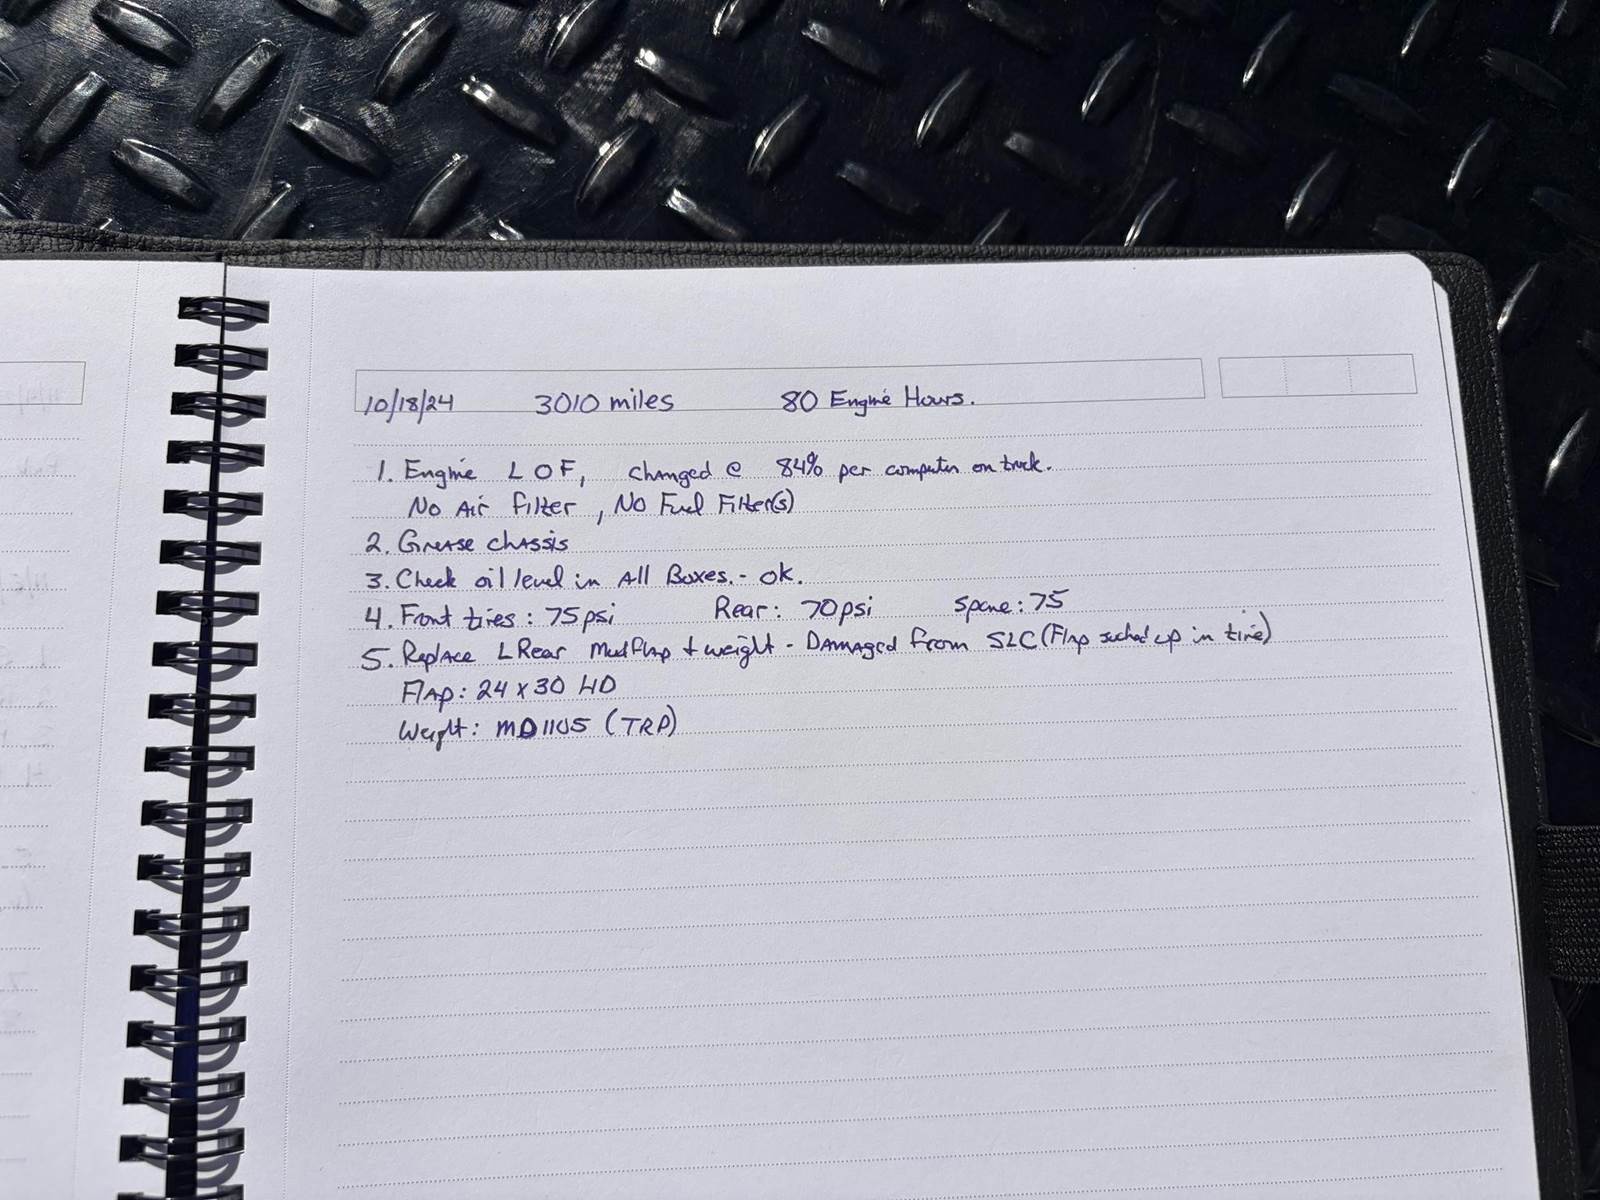 10/18/24 3010 miles 80 Engine Hours.
1. Engine LOF, changed @ 84% per computer on truck.
No Air filter, No Fuel Filter(s)
2. Grease chassis
3. Check oil level in All Boxes. - OK.
4. Front tires: 75psi Rear: 70psi Spare: 75
5. Replace L Rear Mudflap + weight - Damaged from SLC (Flap sucked up in tire)
Flap: 24 x 30 HD
Weight: MD1105 (TRP)